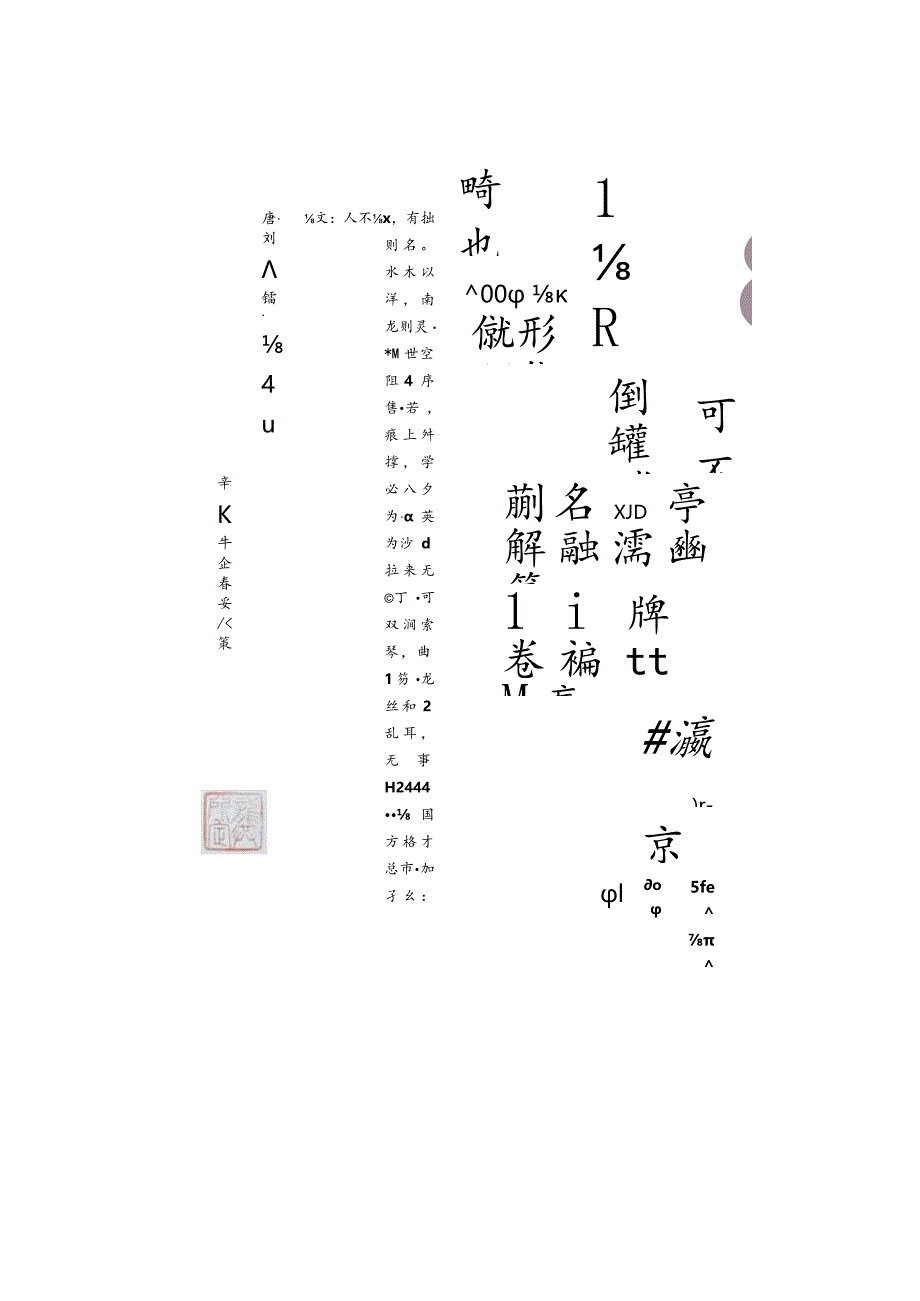 唐·
刘
Λ
镭
·
⅛
4
u
⅛文：人不⅛x，有拙
则名。
水木以
洋，南
龙则灵·
*M世空
阻4序
售•若，
痕上舛
撑，学
必八夕
为·α英
为沙d
拉来无
©丁•可
双涧索
琴，曲
1笏•龙
丝和2
乱耳，
无事
H2444
••⅛国
方格才
总市•加
孑幺：
辛
K
牛
企
春
妥
/<
策
畸
也
^00φ ⅛κ
僦形
1
⅛
R
倒
罐
可
蒯名 XJD 亭
解融濡豳
1 i 牌
卷褊tt
#瀛
京
φl
∂o
φ
5fe
^
⅞π
^